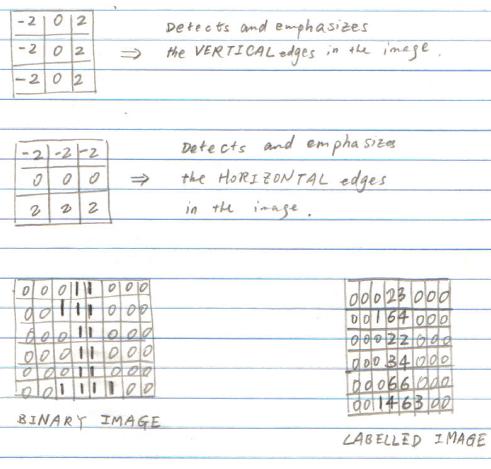 -2 0 2
-2 0 2
-2 0 2
⇒ Detects and emphasizes
the VERTICAL edges in the image.
-2 -2 -2
0 0 0
2 2 2
⇒ Detects and emphasizes
the HORIZONTAL edges
in the image.
0 0 0 1 1 0 0 0
0 0 1 1 1 0 0 0
0 0 0 1 1 0 0 0
0 0 0 1 1 0 0 0
0 0 0 1 1 0 0 0
0 0 1 1 1 1 0 0
BINARY IMAGE
0 0 0 2 3 0 0 0
0 0 1 6 4 0 0 0
0 0 0 2 2 0 0 0
0 0 0 3 4 0 0 0
0 0 0 6 6 0 0 0
0 0 1 4 6 3 0 0
LABELLED IMAGE